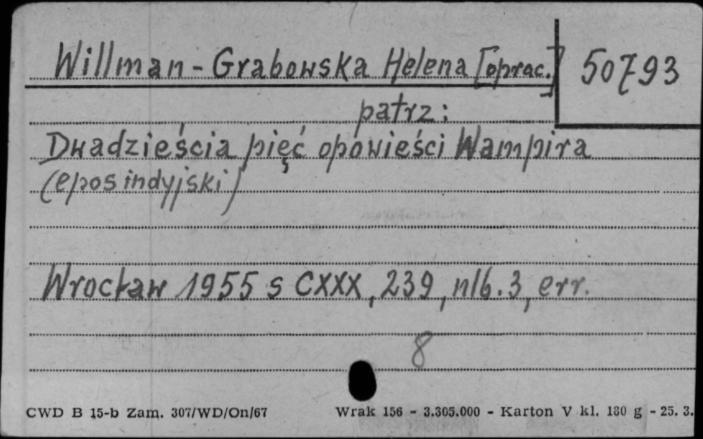 Willman-Grabowska Helena [oprac.] 50793
patrz:
Dwadzieścia pięć opowieści Wampira
(epos indyjski)
Wrocław 1955 s CXXX, 239, nlb. 3, err.
8
CWD B 15-b Zam. 307/WD/On/67 Wrak 156 - 3.305.000 - Karton V kl. 180 g - 25. 3.